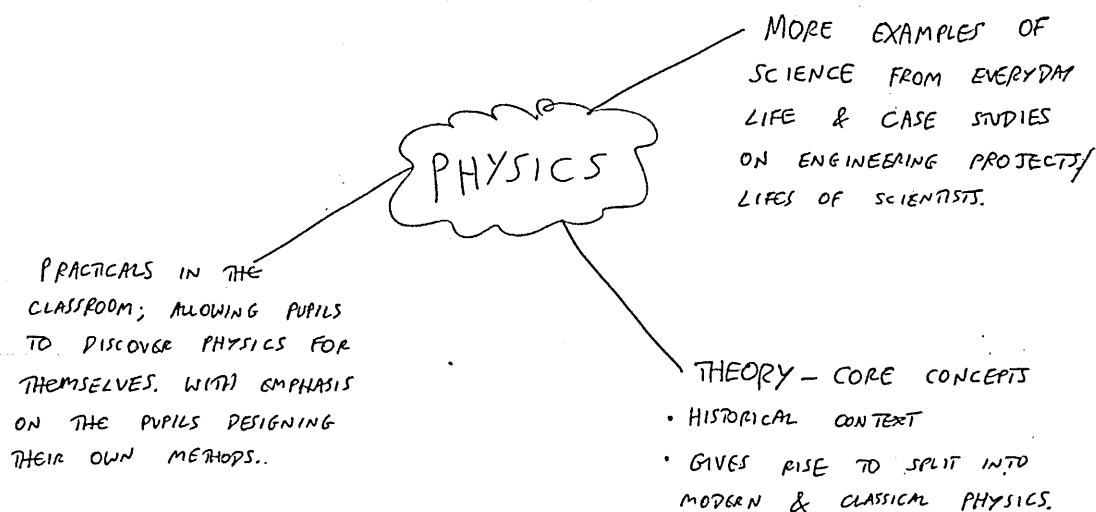 PHYSICS
MORE EXAMPLES OF
SCIENCE FROM EVERYDAY
LIFE & CASE STUDIES
ON ENGINEERING PROJECTS/
LIFES OF SCIENTISTS.
PRACTICALS IN THE
CLASSROOM; ALLOWING PUPILS
TO DISCOVER PHYSICS FOR
THEMSELVES. WITH EMPHASIS
ON THE PUPILS DESIGNING
THEIR OWN METHODS..
THEORY - CORE CONCEPTS
• HISTORICAL CONTEXT
• GIVES RISE TO SPLIT INTO
MODERN & CLASSICAL PHYSICS.